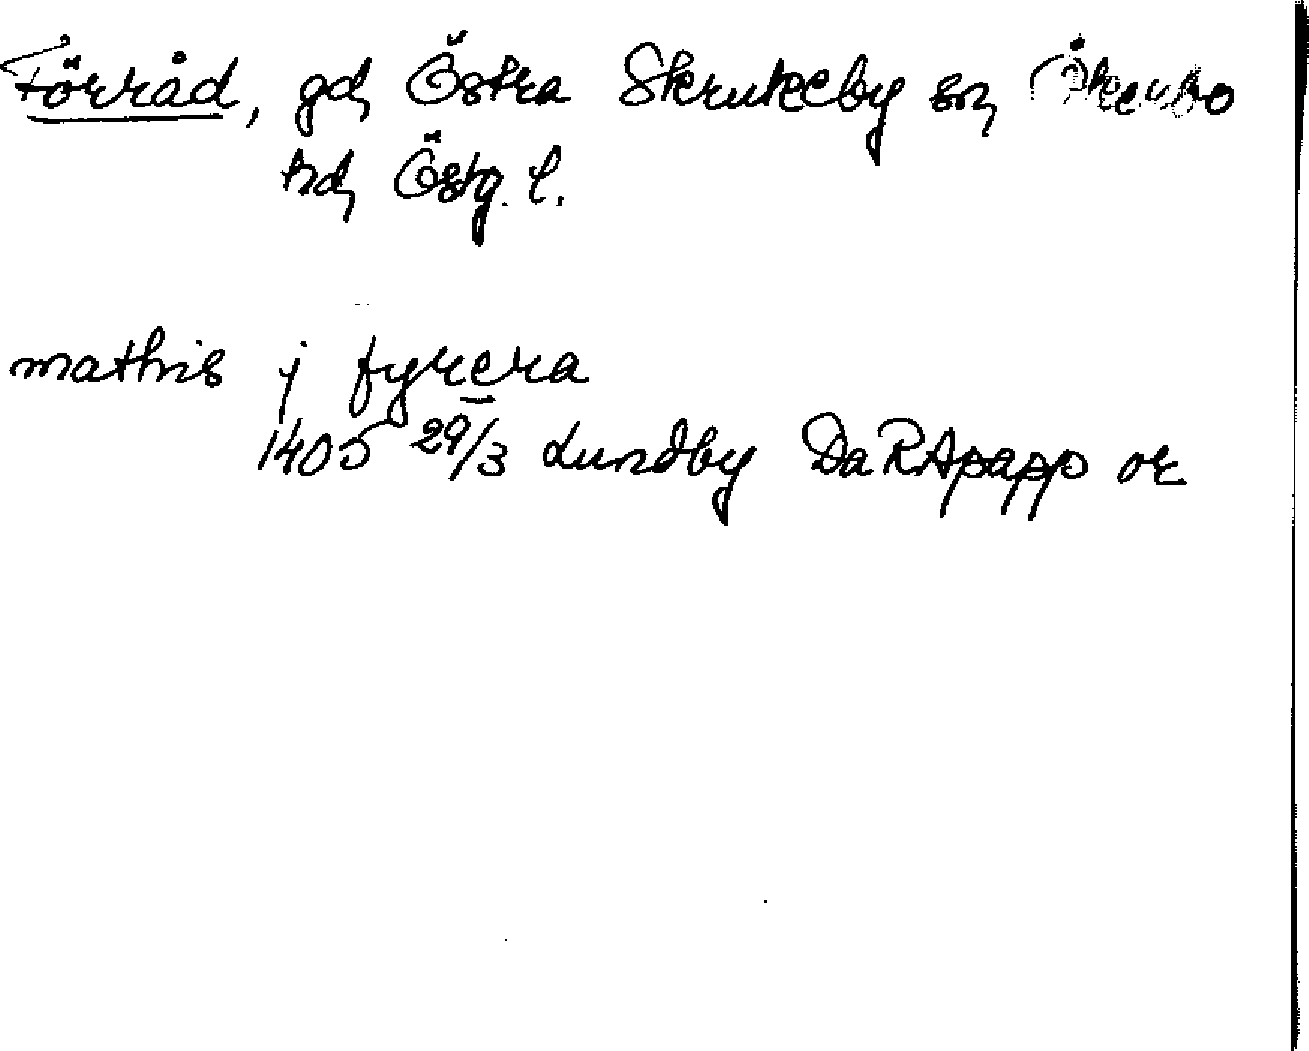 Förråd, gd, Östra Skrukeby sn, Åkerbo
hd, Östg. l.
mathis j fyrera
1405 29/3 Lundby DaRApapp or